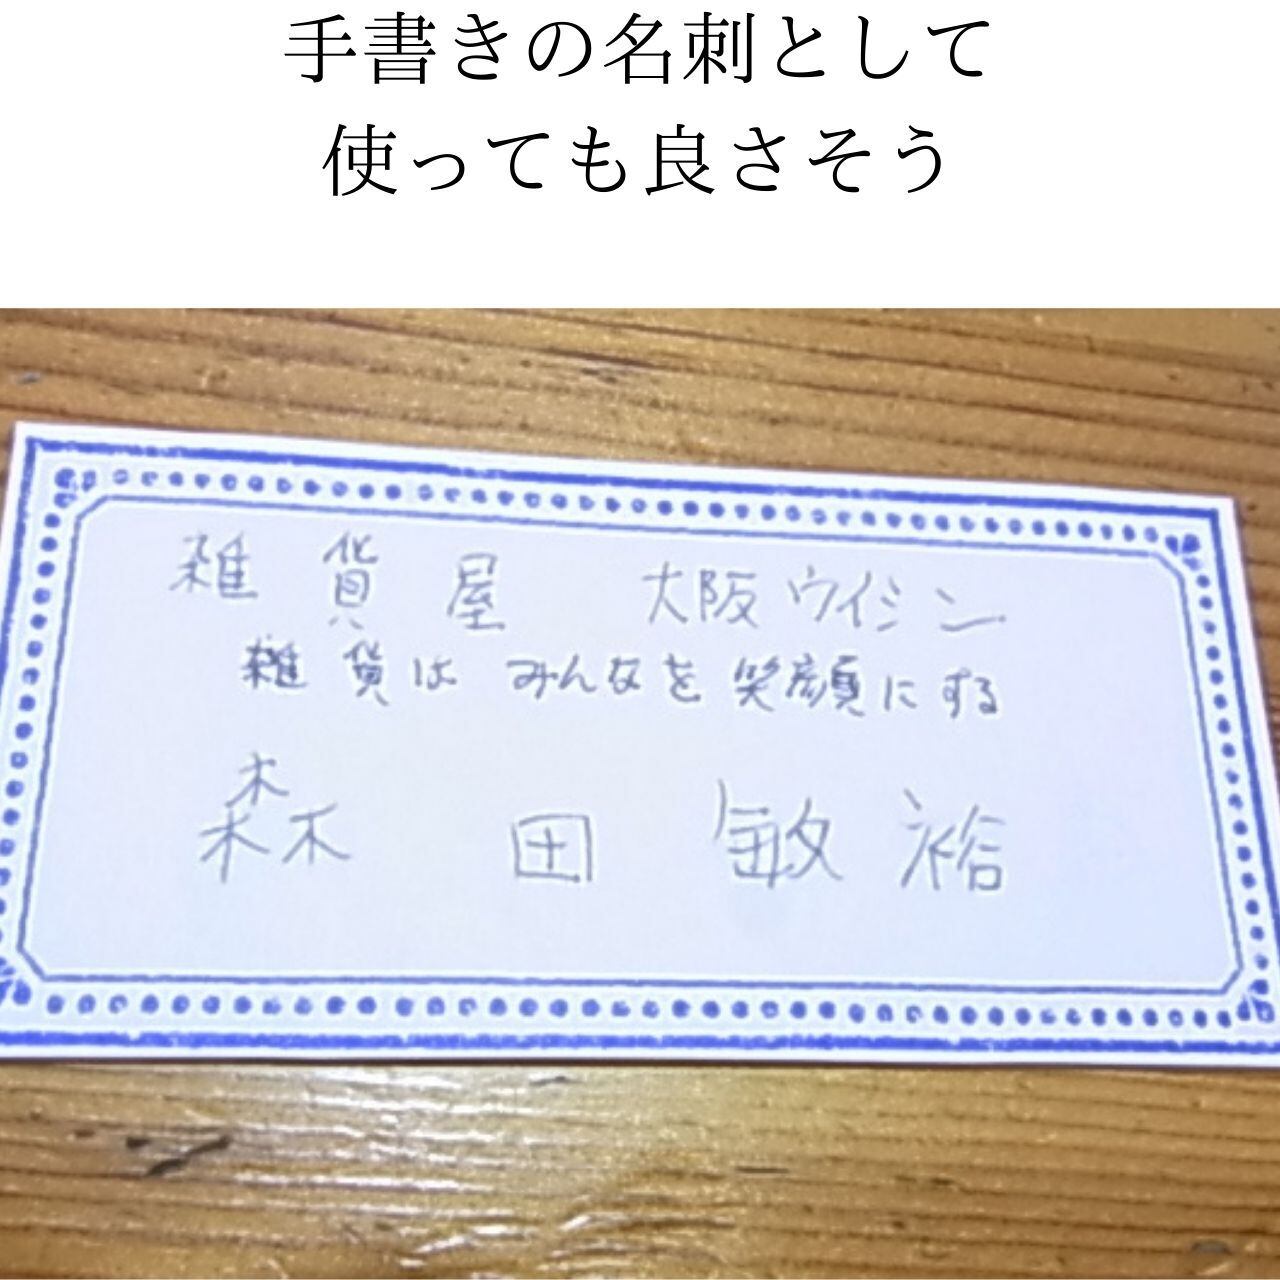 手書きの名刺として
使っても良さそう
雑貨屋 大阪ウイシン
雑貨は みんなを 笑顔にする
森田 敏裕